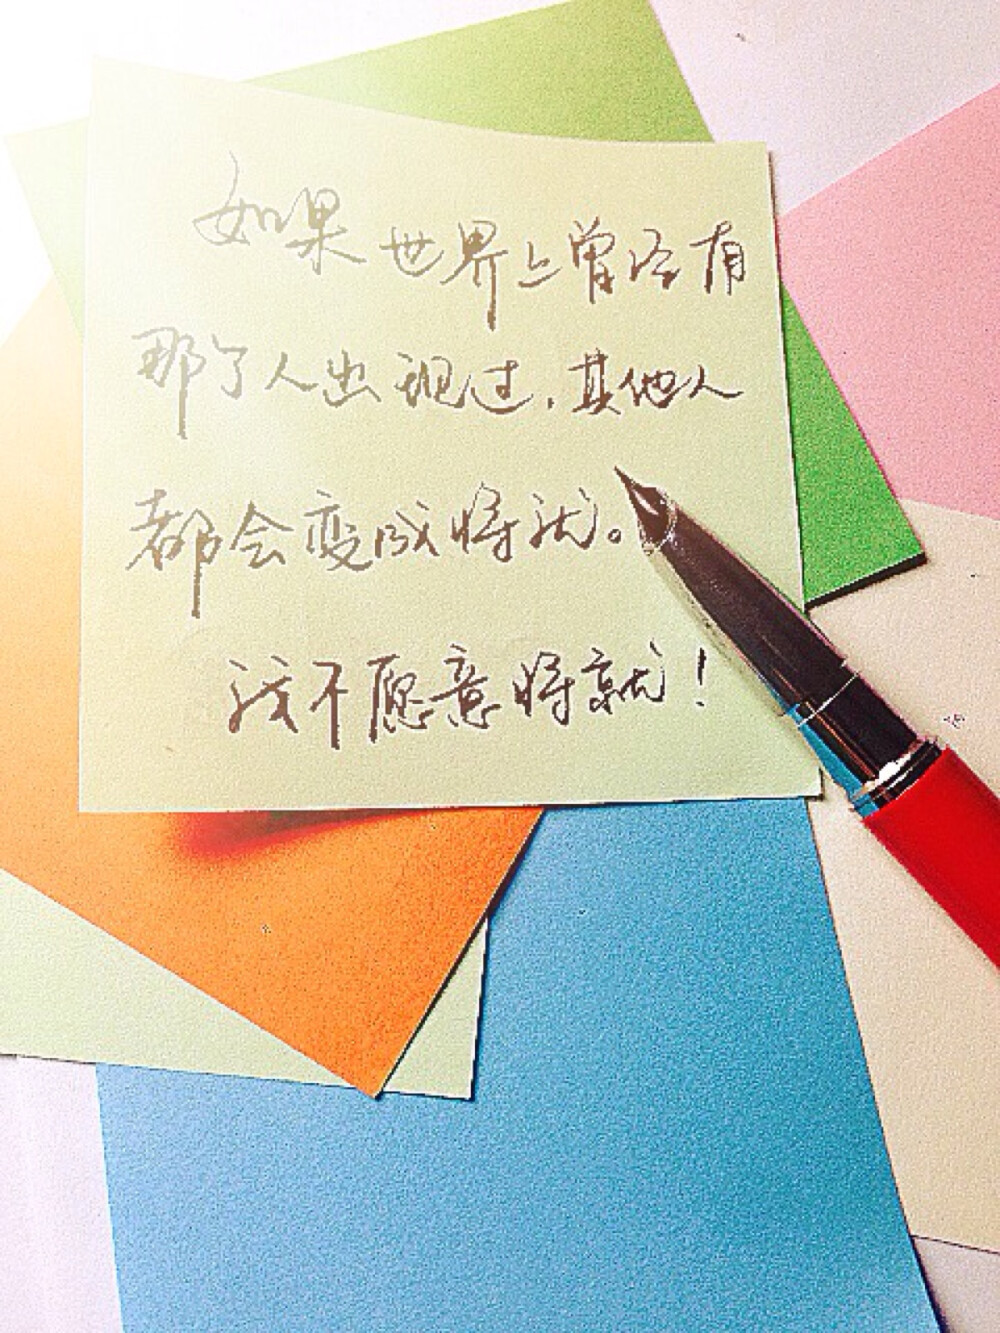 如果世界上曾经有
那个人出现过，其他人
都会变成将就。
我不愿意将就！